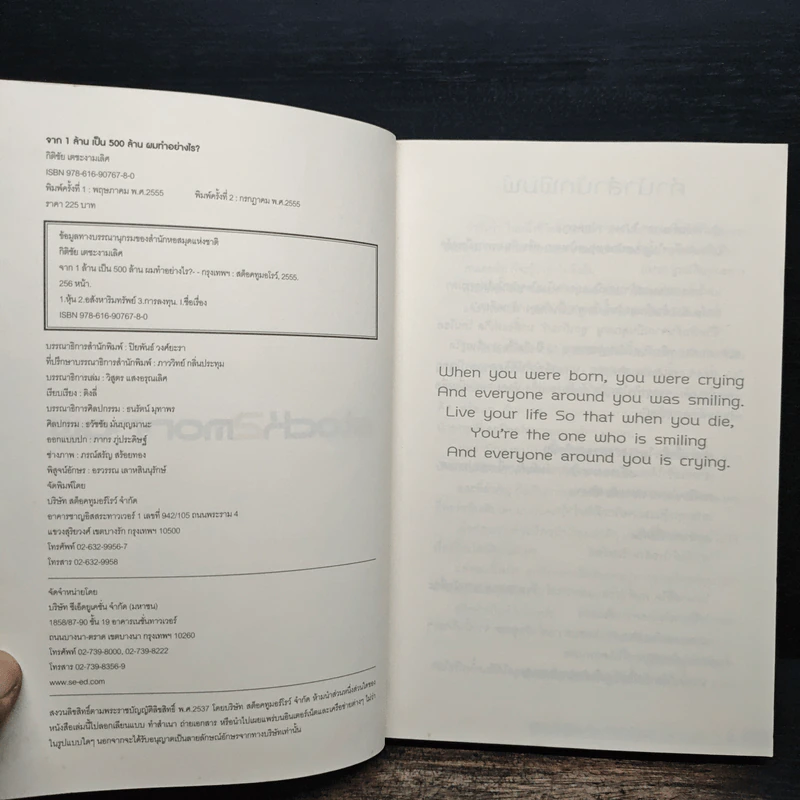 จาก 1 ล้าน เป็น 500 ล้าน ผมทำอย่างไร?
กิติชัย เตชะงามเลิศ
ISBN 978-616-90767-8-0
พิมพ์ครั้งที่ 1 : พฤษภาคม พ.ศ.2555 พิมพ์ครั้งที่ 2 : กรกฎาคม พ.ศ.2555
ราคา 225 บาท
ข้อมูลทางบรรณานุกรมของสำนักหอสมุดแห่งชาติ
กิติชัย เตชะงามเลิศ
จาก 1 ล้าน เป็น 500 ล้าน ผมทำอย่างไร?- - กรุงเทพฯ : สต็อคทูมอโรว์, 2555.
256 หน้า.
1.หุ้น 2.อสังหาริมทรัพย์ 3.การลงทุน. I.ชื่อเรื่อง
ISBN 978-616-90767-8-0
บรรณาธิการสำนักพิมพ์ : ปิยพันธ์ วงศ์ยะรา
ที่ปรึกษาบรรณาธิการสำนักพิมพ์ : ภาววิทย์ กลิ่นประทุม
บรรณาธิการเล่ม : วิสูตร แสงอรุณเลิศ
เรียบเรียง : ดิงลี่
บรรณาธิการศิลปกรรม : ธนรัตน์ มุทาพร
ศิลปกรรม : ธวัชชัย มั่นบุญมานะ
ออกแบบปก : ภากร ภู่ประดิษฐ์
ช่างภาพ : ภรณ์สรัญ สร้อยทอง
พิสูจน์อักษร : อรวรรณ เลาหสินนุรักษ์
จัดพิมพ์โดย
บริษัท สต็อคทูมอร์โรว์ จำกัด
อาคารชาญอิสสระทาวเวอร์ 1 เลขที่ 942/105 ถนนพระราม 4
แขวงสุริยวงศ์ เขตบางรัก กรุงเทพฯ 10500
โทรศัพท์ 02-632-9956-7
โทรสาร 02-632-9958
จัดจำหน่ายโดย
บริษัท ซีเอ็ดยูเคชั่น จำกัด (มหาชน)
1858/87-90 ชั้น 19 อาคารเนชั่นทาวเวอร์
ถนนบางนา-ตราด เขตบางนา กรุงเทพฯ 10260
โทรศัพท์ 02-739-8000, 02-739-8222
โทรสาร 02-739-8356-9
www.se-ed.com
สงวนลิขสิทธิ์ตามพระราชบัญญัติลิขสิทธิ์ พ.ศ.2537 โดยบริษัท สต็อคทูมอร์โรว์ จำกัด ห้ามนำส่วนหนึ่งส่วนใดของ
หนังสือเล่มนี้ไปลอกเลียนแบบ ทำสำเนา ถ่ายเอกสาร หรือนำไปเผยแพร่บนอินเตอร์เน็ตและเครือข่ายต่างๆ ไม่ว่า
ในรูปแบบใดๆ นอกจากจะได้รับอนุญาตเป็นลายลักษณ์อักษรจากทางบริษัทเท่านั้น
When you were born, you were crying
And everyone around you was smiling.
Live your life So that when you die,
You're the one who is smiling
And everyone around you is crying.